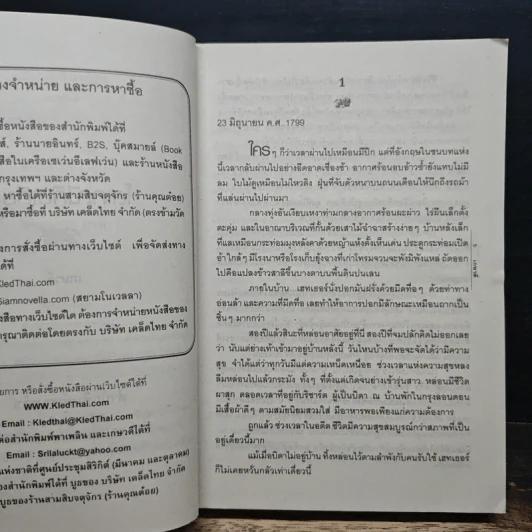 งจำหน่าย และการหาซื้อ
ซื้อหนังสือของสำนักพิมพ์ได้ที่
ส์, ร้านนายอินทร์, B2S, บุ๊คสมายล์ (Book
สือในเครือเซเว่นอีเลฟเว่น) และร้านหนังสือ
กรุงเทพฯ และต่างจังหวัด
หาซื้อได้ที่ร้านสามสิบจตุจักร (ร้านคุณต๋อย)
หรือมาซื้อที่ บริษัท เคล็ดไทย จำกัด (ตรงข้ามวัด
องการสั่งซื้อผ่านทางเว็บไซต์ เพื่อจัดส่งทาง
ได้ที่
KledThai.com
Siamnovella.com (สยามโนเวลลา)
สือทางเว็บไซต์ใด ต้องการจำหน่ายหนังสือของ
รุณาติดต่อโดยตรงกับ บริษัท เคล็ดไทย จำกัด
ยการ หรือสั่งซื้อหนังสือผ่านเว็บไซต์ได้ที่
www.KledThai.com
Email : Kledthai@KledThai.com
ต่อสำนักพิมพ์พาเพลิน และเกษวดีได้ที่
Email : Srilaluckt@yahoo.com
แห่งชาติที่ศูนย์ประชุมสิริกิติ์ (มีนาคม และตุลาคม)
ของสำนักพิมพ์ได้ที่ บูธของ บริษัท เคล็ดไทย จำกัด
บูธของร้านสามสิบจตุจักร (ร้านคุณต๋อย)
1
23 มิถุนายน ค.ศ. 1799
ใครๆ ก็ว่าเวลาผ่านไปเหมือนมีปีก แต่ที่อังกฤษในชนบทแห่ง
นี้เวลากลับผ่านไปอย่างอืดอาดเชื่องช้า อากาศร้อนอบอ้าวซ้ำยังแทบไม่มี
ลม ใบไม้ดูเหมือนไม่ไหวติง ฝุ่นที่จับตัวหนาบนถนนเตือนให้นึกถึงรถม้า
ที่แล่นผ่านไปผ่านมา
กลางทุ่งอันเงียบเหงาท่ามกลางอากาศร้อนผะผ่าว ไร่มีนเล็กตั้ง
ตะคุ่ม และในอาณาบริเวณที่กั้นด้วยเสาไม้จำฉาสร้างง่ายๆ บ้านหลังเล็ก
ที่แลเหมือนกระท่อมมุงหลังคาด้วยหญ้าแห้งตั้งเห็นเด่น ประตูกระท่อมเปิด
อ้า ใกล้ๆ มีโรงนาหรือโรงเก็บยุ้งฉางที่เก่าโทรมจวนจะพังมิพังแหล่ ถัดออก
ไปคือแปลงข้าวสาลีขึ้นบางตาบนพื้นดินปนเลน
ภายในบ้าน เฮทเธอร์นั่งปอกมันฝรั่งด้วยมีดทื่อๆ ด้วยท่าทาง
อ่อนล้า และความที่มีดทื่อ เลยทำให้อาการปอกมีลักษณะเหมือนถากเป็น
ชิ้นๆ มากกว่า
สองปีแล้วสินะที่หล่อนอาศัยอยู่ที่นี่ สองปีที่จมปลักติดไม่ออกเลย
ว่า นับแต่ย่างเท้าเข้ามาอยู่บ้านหลังนี้ วันไหนบ้างที่พอจะจัดได้ว่ามีความ
สุข จำได้แต่ว่าทุกวันมีแต่ความเหน็ดเหนื่อย ช่วงเวลาแห่งความสุขหลง
ลืมหล่อนไปแล้วกระมัง ทั้งๆ ที่ตั้งแต่เกิดจนย่างเข้ารุ่นสาว หล่อนมีชีวิต
ผาสุก ตลอดเวลาที่อยู่กับริชาร์ด ผู้เป็นบิดา ณ บ้านพักในกรุงลอนดอน
มีเสื้อผ้าดีๆ ตามสมัยนิยมสวมใส่ มีอาหารพอเพียงแก่ความต้องการ
ถูกแล้ว ช่วงเวลาในอดีต ชีวิตมีความสุขสมบูรณ์กว่าสภาพที่เป็น
อยู่เดี๋ยวนี้มาก
แม้เมื่อบิดาไม่อยู่บ้าน ทิ้งหล่อนไว้ตามลำพังกับคนรับใช้ เฮทเธอร์
ก็ไม่เคยหวั่นกลัวเท่าเดี๋ยวนี้